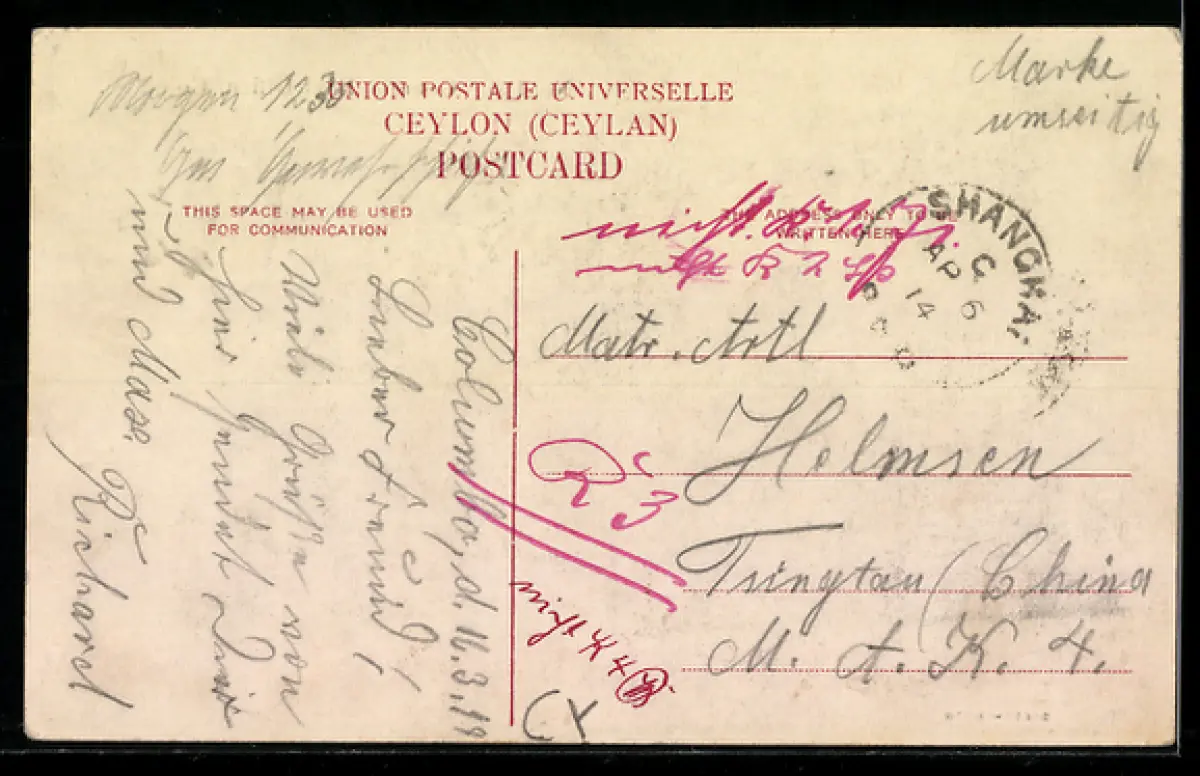 Marke
umseitig
Morgen 12 30
UNION POSTALE UNIVERSELLE
CEYLON (CEYLAN)
POSTCARD
THIS SPACE MAY BE USED
FOR COMMUNICATION
THE ADDRESS ONLY TO BE
WRITTEN HERE
SHANGHAI
C
AP 6
14
Columbo, d. 16.3.14
Lieber Freund!
Viele Grüße von
hier sendet Dir
und Max.
Richard
nicht
nicht K 2
Matr. Artl
Holmsen
Tsingtau (China
M. A. K. 4.
R 3
nicht K 4
T